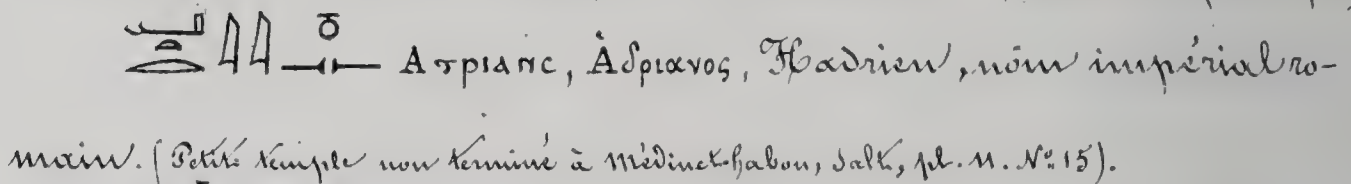 𓂝𓏏𓂋𓇋𓇋𓏌𓊃 Ⲁⲧⲣⲓⲁⲛⲥ, Ἀδριανος, Hadrien, nom impérial ro-
main. (Petit temple non terminé à Médinet-habou, Salt, pl. 11. N.º 15).